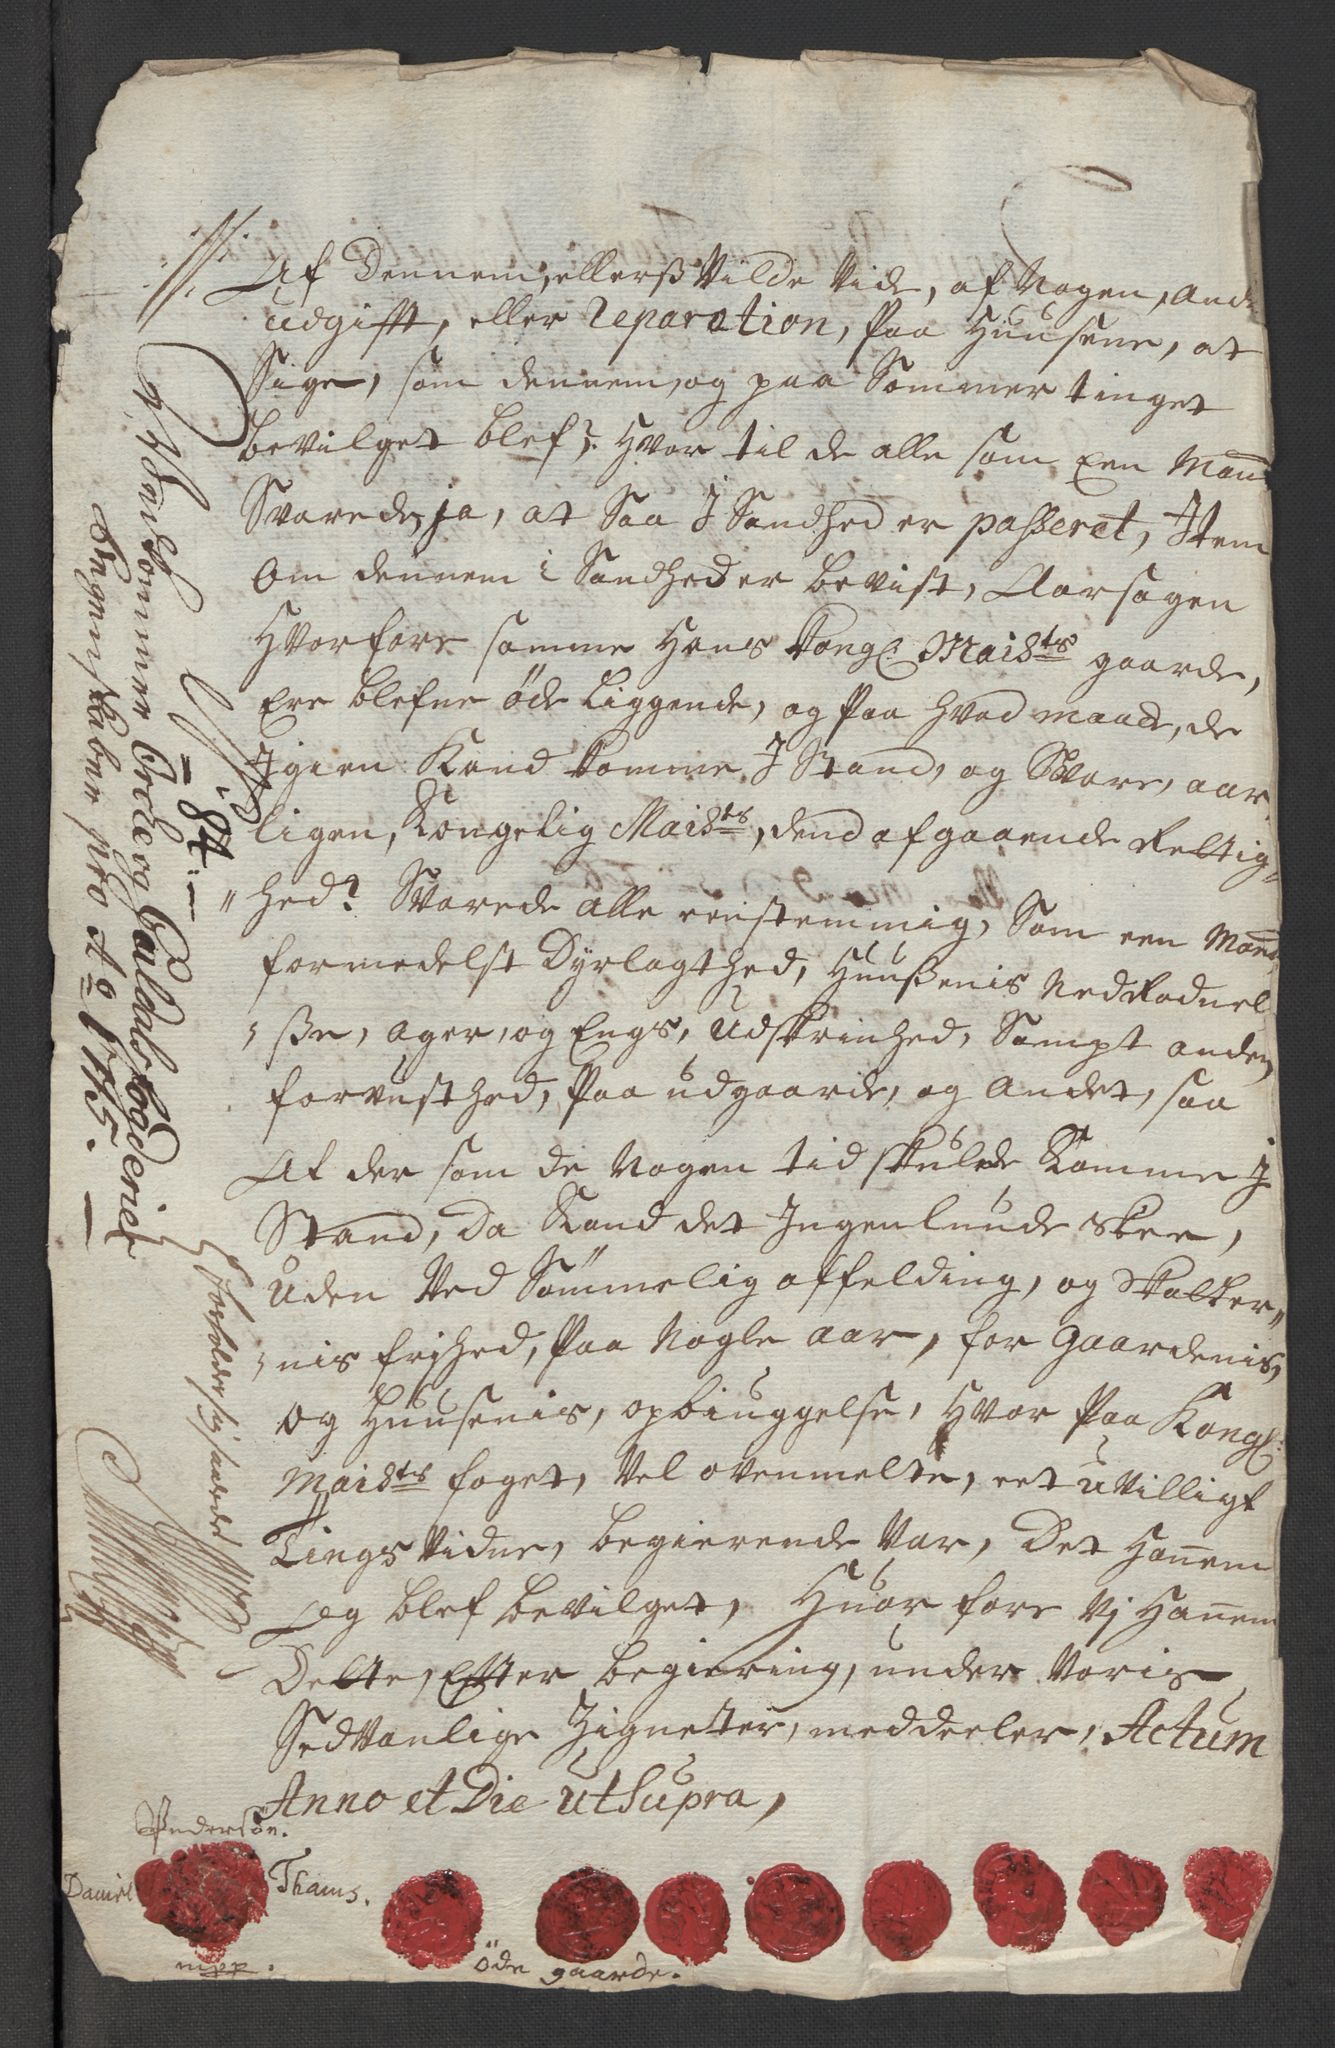 Af Dennem, ellerß Vilde Vide, af Nogen, And
udgifft, eller Reparation, Paa Huusene, at
Sige, som dennem, og paa Sommer tinget
bevilget blef?. Hvor til de alle som Een Mand
Svarede, ja, at Saa J Sandhed er passeret, Jtem
Om dennem i Sandhed er bevist, Aarsagen
Hvorfore samme Hans Kongl: Maists gaarde,
Ere blefne øde Liggende, og Paa hvad maade, de
Jgien Kand komme J Stand, og Svare, aar
ligen, Kongelig Maists, dend afgaaende Rettig„
„hed? Svarede alle eenstemmig, Som een Mand
formedelst Dyrlagthed, Huußenis Nedradnel
„ße, ager, og Engs, Udskrinhed, Sampt anden
forvusthed, Paa udgaarde, og Andet, saa
At der som de Nogen tid skulde Komme J
Stand, Da Kand det Jngenlunde skee,
Uden Ved Sømmelig affelding, og Skatter„
„nis frjhed, Paa Nogle aar, for Gaardenis,
og Huusenis, opbiuggelse, Hvor Paa Kongl:
Maists foget, Vel ovenmelte, eet uvilligt
Tings Vidne, begierende Var, Det Hannem
og blef bevilget, Huorfore Vj Hannem
Dette, Efter begiering, under Voris
Sedvanlige Zignetter, meddeeler, Actum
Anno et Die ut Supra,
Andersøn.
Daniel Thams.
mpp.
øde gaarde.
No: 84:
Vedkommer Orche og Guldahls fogderies
Regenskaber pro Ao 1715.